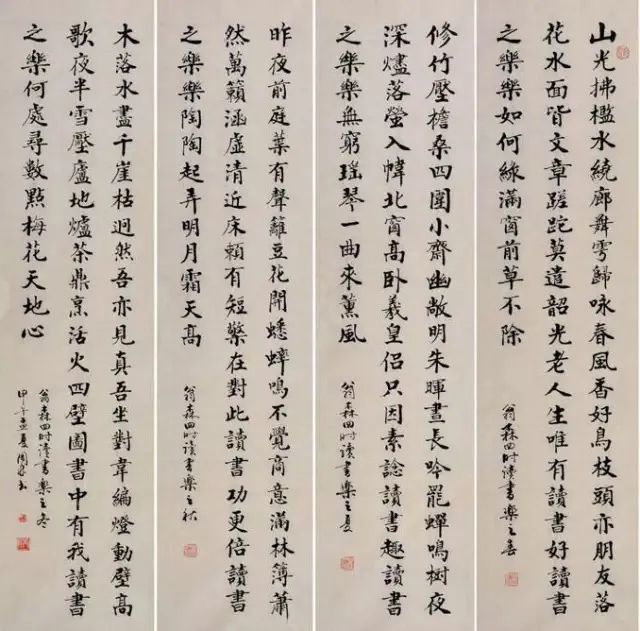 山光拂檻水繞廊舞雩歸咏春風香好鳥枝頭亦朋友落
花水面皆文章蹉跎莫遣韶光老人生唯有讀書好讀書
之樂樂如何綠滿窗前草不除
翁森四时讀書樂之春
修竹壓檐桑四圍小齋幽敞明朱暉晝長吟罷蟬鳴樹夜
深燼落螢入幃北窗高卧羲皇侶只因素諗讀書趣讀書
之樂樂無窮瑤琴一曲來薰風
翁森四时讀書樂之夏
昨夜前庭葉有聲籬豆花開蟋蟀鳴不覺商意滿林簿蕭
然萬籟涵虛清近床賴有短檠在對此讀書功更倍讀書
之樂樂陶陶起弄明月霜天高
翁森四时讀書樂之秋
木落水盡千崖枯迥然吾亦見真吾坐對韋編燈動壁高
歌夜半雪壓廬地爐茶鼎烹活火四壁圖書中有我讀書
之樂何處尋數點梅花天地心
翁森四时讀書樂之冬
甲午孟夏